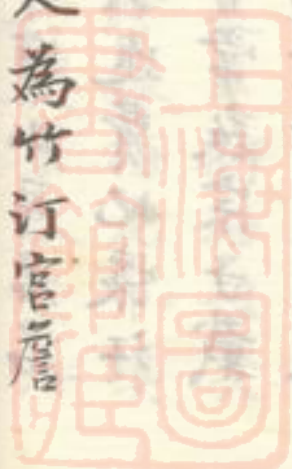 為竹汀宮詹
上海圖
書館藏